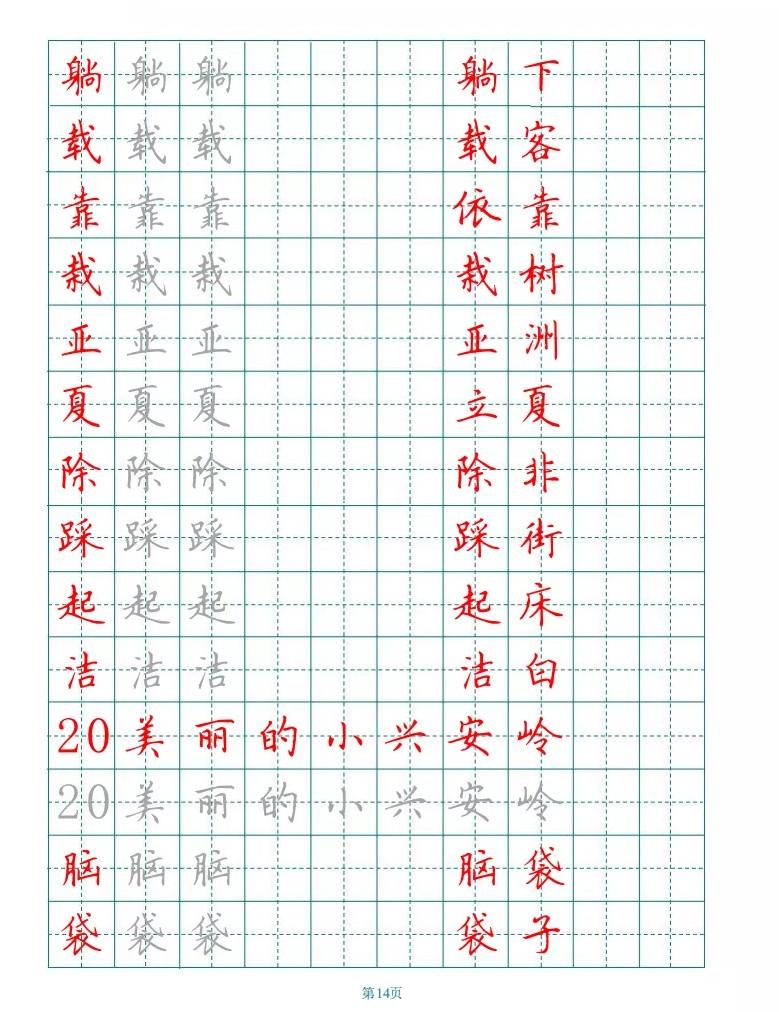 躺躺躺躺下
载载载载客
靠靠靠依靠
栽栽栽栽树
亚亚亚亚洲
夏夏夏立夏
除除除除非
踩踩踩踩街
起起起起床
洁洁洁洁白
20美丽的小兴安岭
20美丽的小兴安岭
脑脑脑脑袋
袋袋袋袋子
第14页